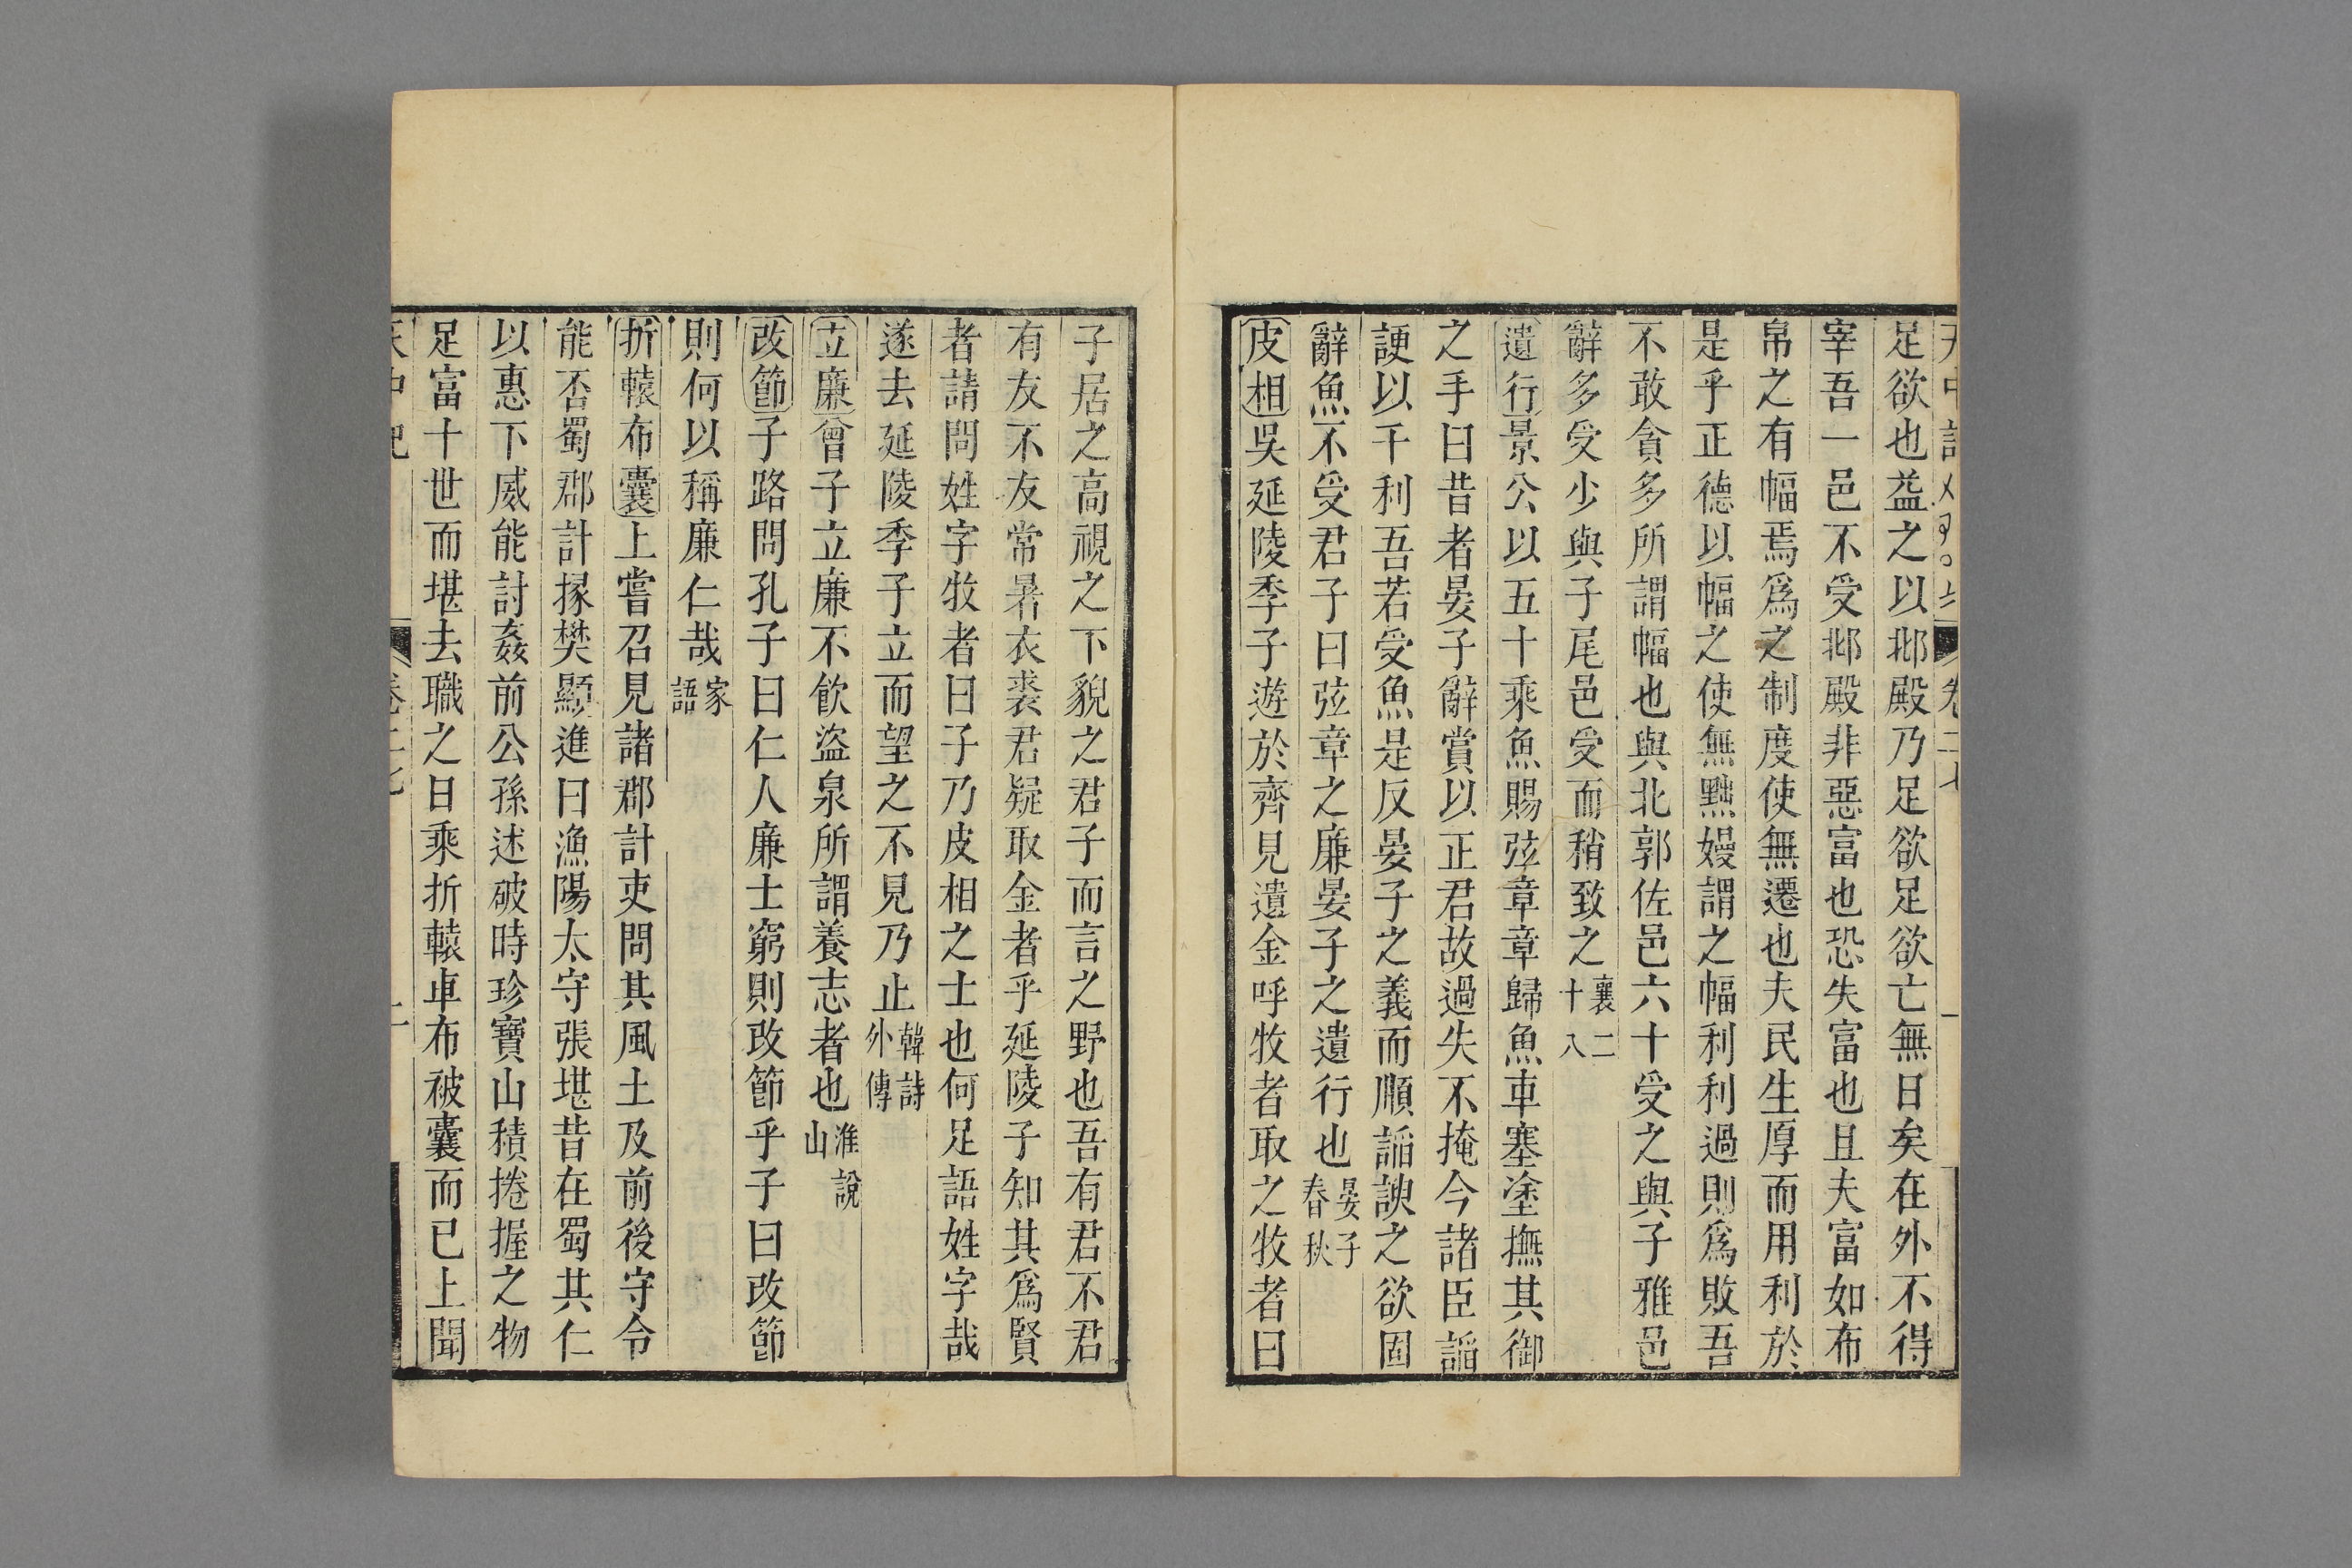 足欲也益之以邶殿乃足欲足欲亡無日矣在外不得
宰吾一邑不受邶殿非惡富也恐失富也且夫富如布
帛之有幅焉爲之制度使無遷也夫民生厚而用利於
是乎正德以幅之使無黜嫚謂之幅利利過則爲敗吾
不敢貪多所謂幅也與北郭佐邑六十受之與子雅邑
辭多受少與子尾邑受而稍致之襄二十八
遺行景公以五十乘魚賜弦章章歸魚車塞塗撫其御
之手曰昔者晏子辭賞以正君故過失不掩今諸臣謟
諛以干利吾若受魚是反晏子之義而順謟諛之欲固
辭魚不受君子曰弦章之廉晏子之遺行也晏子春秋
皮相吳延陵季子遊於齊見遺金呼牧者取之牧者曰
子居之高視之下貌之君子而言之野也吾有君不君
有友不友常暑衣裘君疑取金者乎延陵子知其爲賢
者請問姓字牧者曰子乃皮相之士也何足語姓字哉
遂去延陵季子立而望之不見乃止韓詩外傳
立廉曾子立廉不飲盜泉所謂養志者也淮說山
改節子路問孔子曰仁人廉士窮則改節乎子曰改節
則何以稱廉仁哉家語
折轅布囊上嘗召見諸郡計吏問其風土及前後守令
能否蜀郡計掾樊顯進曰漁陽太守張堪昔在蜀其仁
以惠下威能討姦前公孫述破時珍寶山積捲握之物
足富十世而堪去職之日乘折轅車布被囊而已上聞